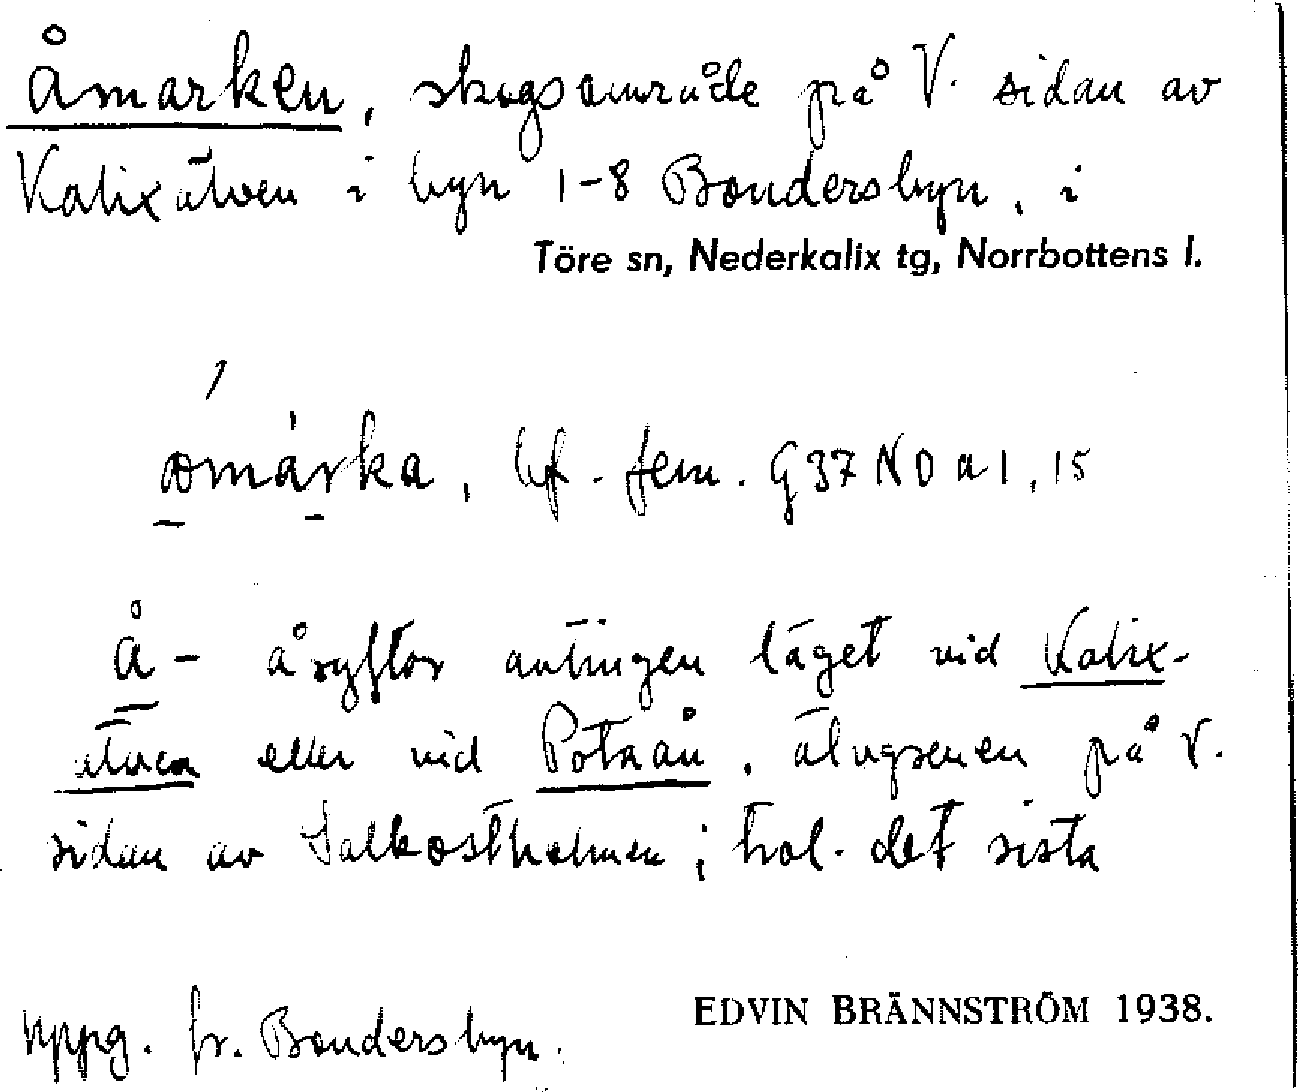 Åmarken, skogsområde på V. sidan av
Kalixälven i byn 1-8 Bondersbyn, i
Töre sn, Nederkalix tg, Norrbottens l.
bf. fem. G37 NO a 1, 15
Å- åsyftar antingen läget vid Kalix-
älven eller vid Potnån, älvgrenen på V.
sidan av Salkostholmen; trol. det sista
Uppg. fr. Bondersbyn.
EDVIN BRÄNNSTRÖM 1938.